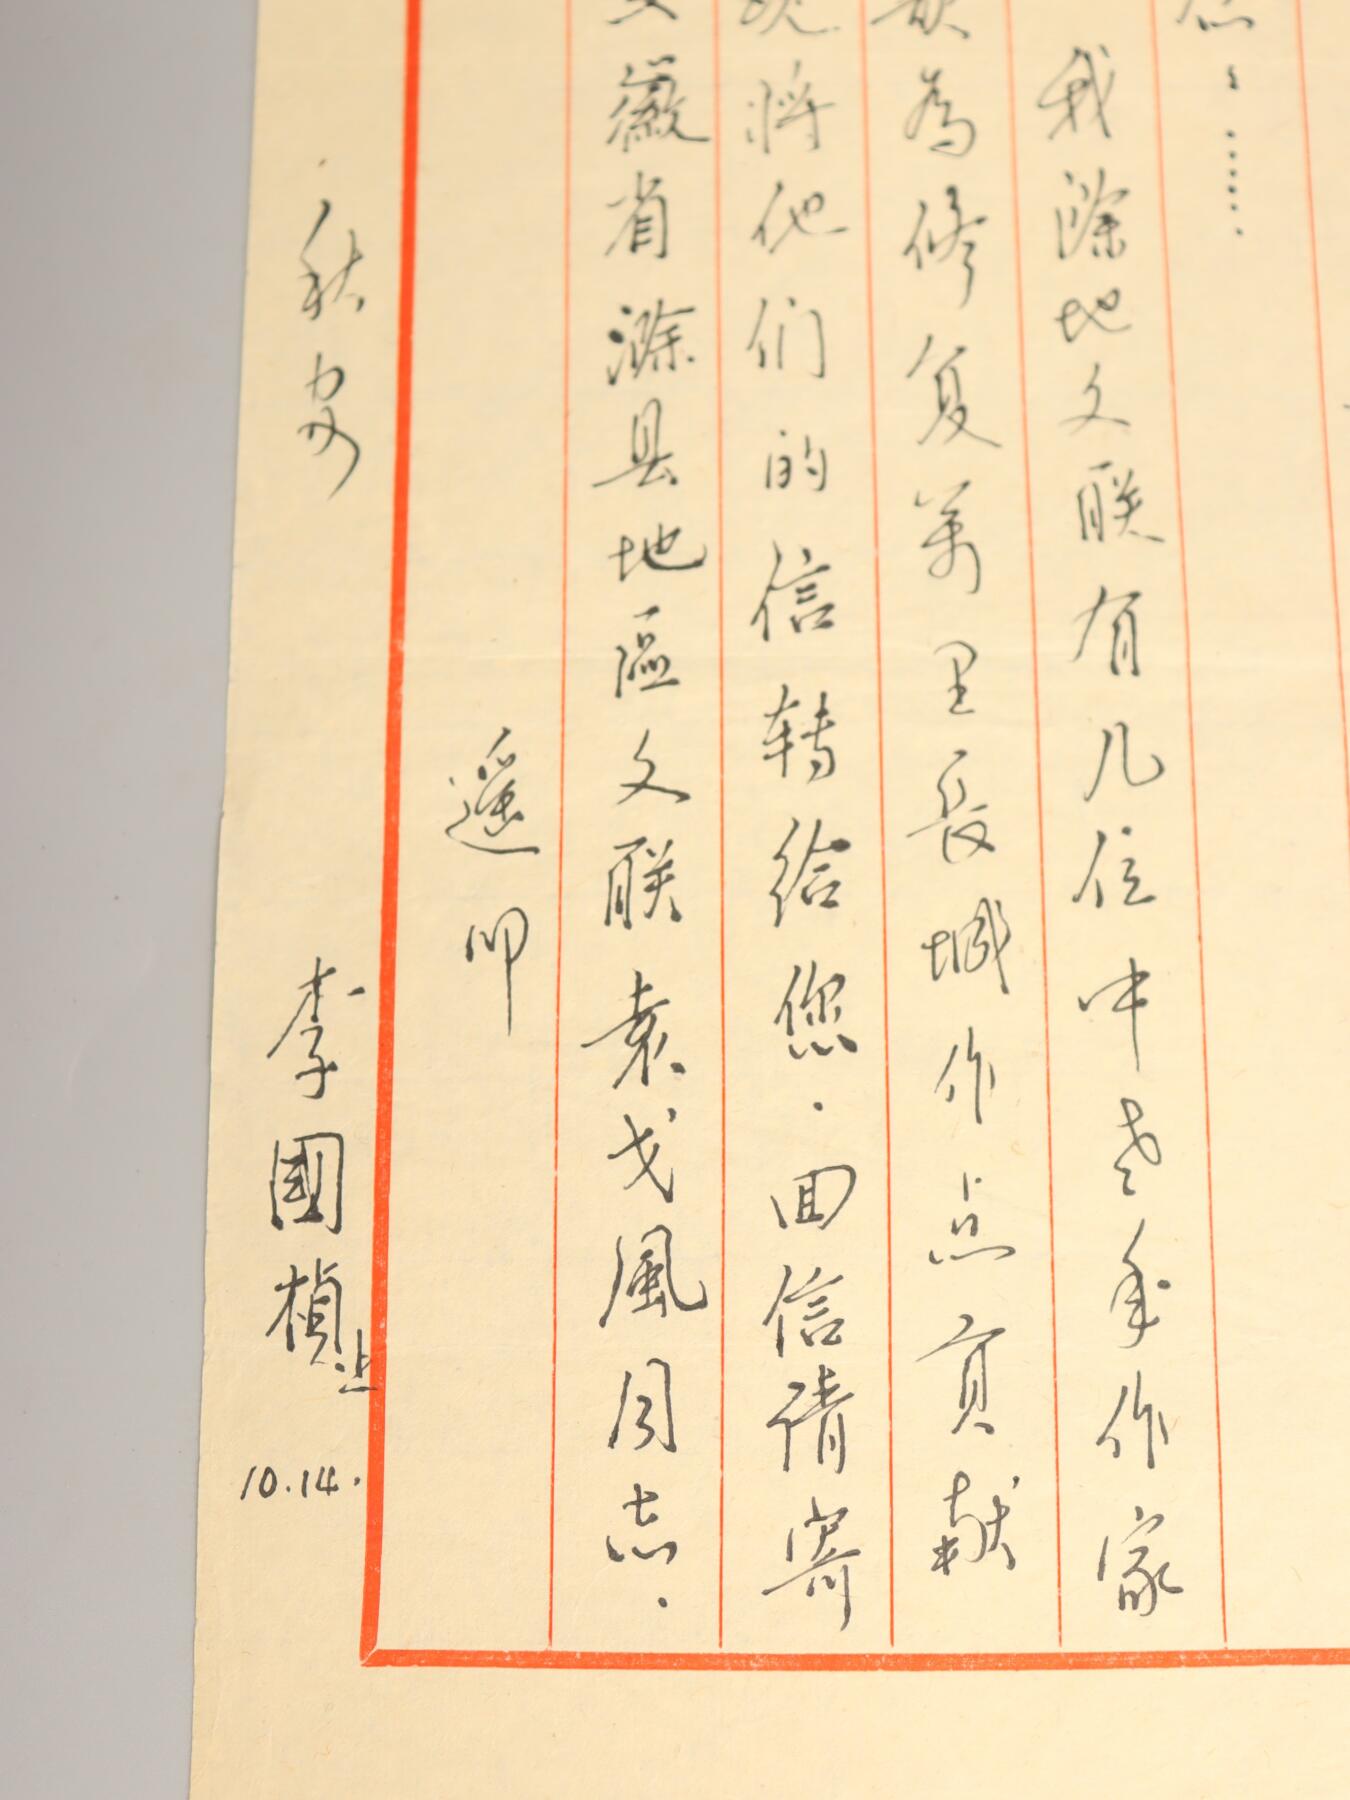 ……
我滁地文联有几位中老年作家
為修复萬里長城作点貢献
将他们的信转给您.回信请寄
徽省滁县地區文联袁戈風同志.
遥叩
秋安
李國楨上
10.14.